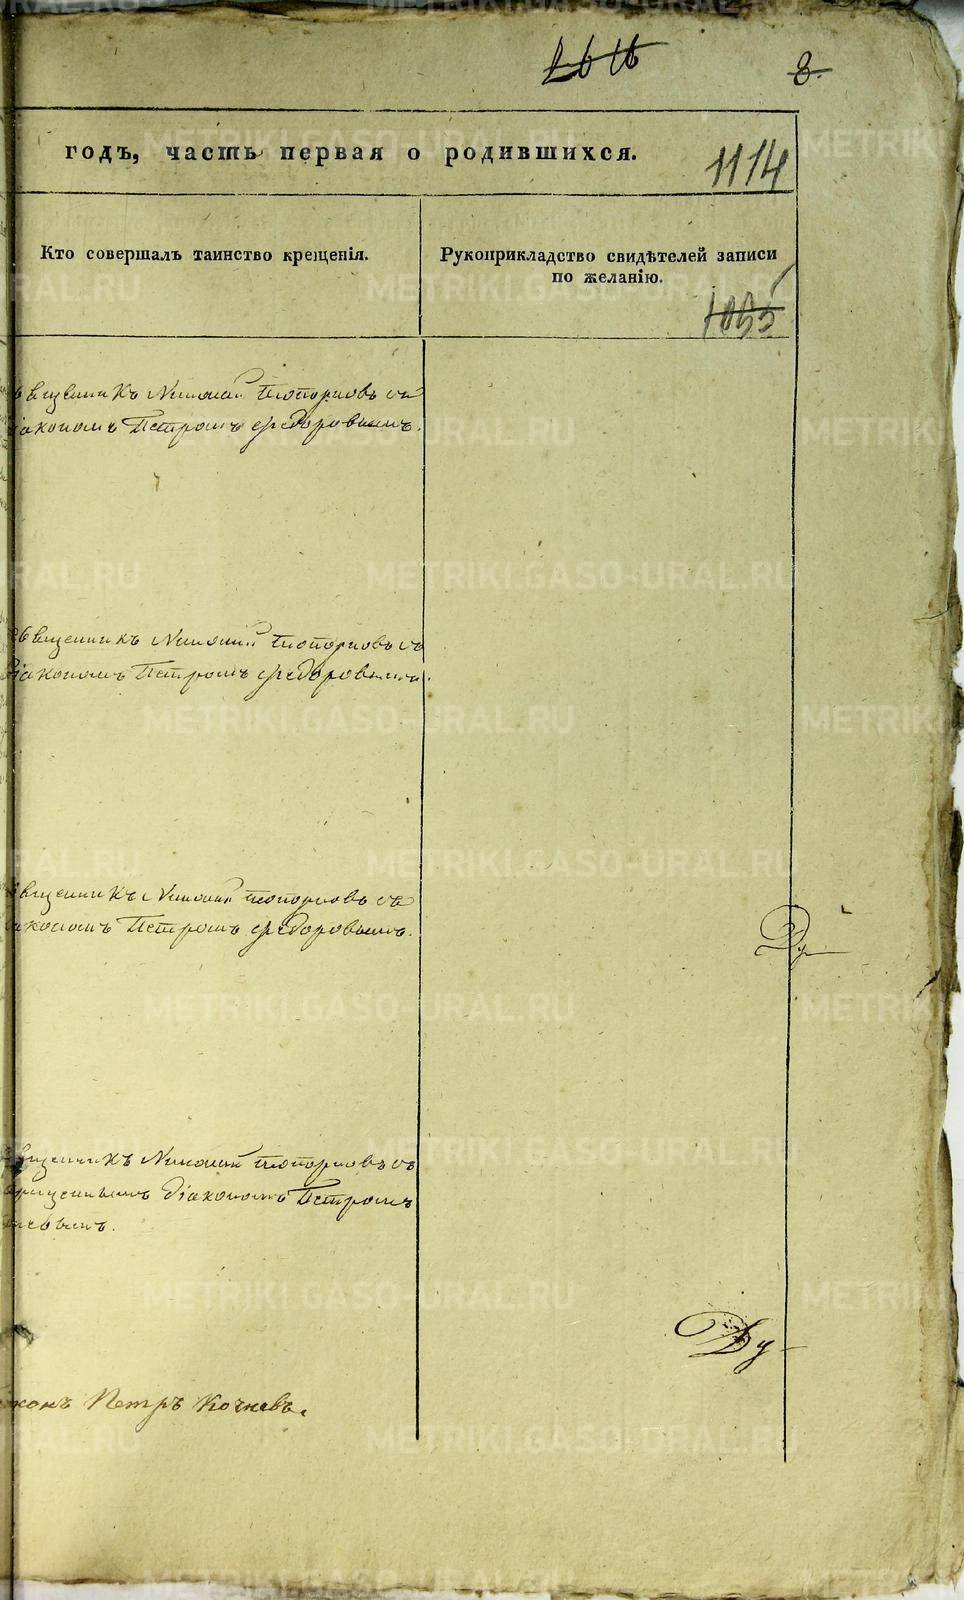 8.
годъ, часть первая о родившихся.
1114
Кто совершалъ таинство крещенія.
Рукоприкладство свидѣтелей записи
по желанію.
1055
Священникъ Николай Топорковъ съ
діакономъ Петромъ Ѳедоровымъ.
Священникъ Николай Топорковъ съ
Діакономъ Петромъ Ѳедоровымъ.
Священникъ Николай Топорковъ съ
діакономъ Петромъ Ѳедоровымъ.
Священникъ Николай Топорковъ съ
діакономъ Петромъ
Петръ Кочневъ.
METRIKI.GASO-URAL.RU